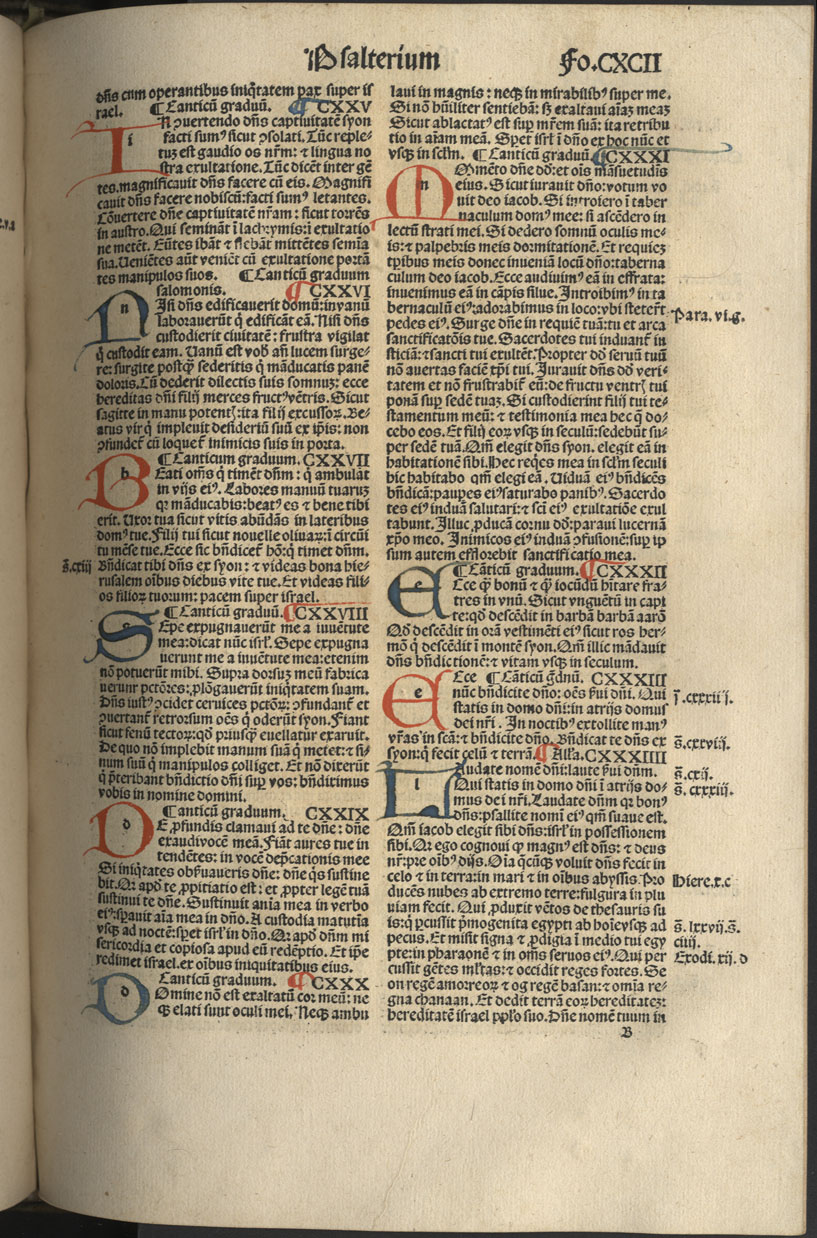 Psalterium Fo.CXCII
dñs cum operantibus iniq̃tatem pax super is
rael. ¶ Canticũ graduũ. ¶ CXXV
IN ꝯuertendo dñs captiuitatẽ syon
facti sumꝰ sicut ꝯsolati. Tũc reple⸗
tuȝ est gaudio os nr̃m: ⁊ lingua no
stra exultatione. Tũc dicẽt inter gẽ
tes. magnificauit dñs facere cũ eis. Magnifi
cauit dñs facere nobiscũ: facti sumꝰ letantes.
Cõuertere dñe captiuitatẽ nr̃am: sicut torrẽs
in austro. Qui seminãt ĩ lachrymis: ĩ exultatio
ne metẽt. Eũtes ibãt ⁊ flebãt mittẽtes semĩa
sua. Ueniẽtes aũt veniẽt cũ exultatione portã
tes manipulos suos. ¶ Canticũ graduum
salomonis. ¶ CXXVI
NIsi dñs edificauerit domũ: in vanũ
laborauerũt q̇ edificãt eã. Nisi dñs
custodierit ciuitatẽ: frustra vigilat
q̇ custodit eam. Uanũ est vob̃ añ lucem surge⸗
re: surgite postq̃ sederitis q̇ mãducatis panẽ
doloris. Cũ dederit dilectis suis somnuȝ: ecce
hereditas dñi filij merces fructꝰ vẽtris. Sicut
sagitte in manu potentꝭ: ita filij excussoꝝ. Be⸗
atus vir q̇ impleuit desideriũ suũ ex ip̃is: non
ꝯfundet̃ cũ loquet̃ inimicis suis in porta.
¶ Canticum graduum. CXXVII
BEati om̃s q̇ timẽt dñm: q̇ ambulãt
in vijs eiꝰ. Labores manuũ tuaruȝ
qꝛ mãducabis: beatꝰ es ⁊ bene tibi
erit. Uxor tua sicut vitis abũdãs in lateribus
domꝰ tue. Filij tui sicut nouelle oliuaꝝ: ĩ circũi
tu mẽse tue. Ecce sic bñdicet̃ hõ: q̇ timet dñm.
Bñdicat tibi dñs ex syon: ⁊ videas bona hie⸗
rusalem oĩbus diebus vite tue. Et videas fili⸗
os filioꝝ tuorum: pacem super israel.
¶ Canticũ graduũ. ¶ CXXVIII
SEpe expugnauerũt me a iuuẽtute
mea: dicat nũc isrł. Sepe expugna
uerunt me a iuuẽtute mea: etenim
nõ potuerũt mihi. Supra dorsuȝ meũ fabrica
uerunt pctõres: ꝓlõgauerũt iniq̃tatem suam.
Dñs iustꝰ ꝯcidet ceruices pctõꝝ: ꝯfundant̃ et
ꝯuertant̃ retrorsum oẽs q̇ oderũt syon. Fiant
sicut fenũ tectoꝝ: qđ priusq̃ euellatur exaruit.
De quo nõ impleuit manum suã q̇ metet: ⁊ si⸗
num suũ q̇ manipulos colliget. Et nõ dixerũt
q̇ p̃teribant bñdictio dñi super vos: bñdiximus
vobis in nomine domini.
¶ Canticũ graduum. CXXIX
DE ꝓfundis clamaui ad te dñe: dñe
exaudi vocẽ meã. Fiãt aures tue in
tendẽtes: in vocẽ dep̃cationis mee
Si iniq̃tates obẜuaueris dñe: dñe q̇s sustine
bit. Qꝛ apđ te ꝓpitiatio est: et ꝓpter legẽ tuã
sustinui te dñe. Sustinuit aĩa mea in verbo
eiꝰ: sꝑauit aĩa mea in dño. A custodia matutĩa
vsq̃ ad noctẽ: speret isrł in dño. Qꝛ apđ dñm mi
sericordia et copiosa apud eũ redẽptio. Et ip̃e
redimet israel. ex oĩbus iniquitatibus eius.
Canticũ graduum. ¶ CXXX
DOmine nõ est exaltatũ cor meũ: ne
q̃ elati sunt oculi mei. Neqȝ ambu
laui in magnis: neqȝ in mirabilibꝰ super me.
Si nõ hũiliter sentiebã: sȝ exaltaui aĩaȝ meaȝ
Sicut ablactatꝰ est sup̱ mr̃em suã: ita retribu
tio in aĩam meã. Speret isrł ĩ dño ex hoc nũc et
vsqȝ in scłm. ¶ Canticũ graduũ ¶ CXXXI
MEmẽto dñe dđ: et oĩs mãsuetudĩs
eius. Sicut iurauit dño: votum vo
uit deo iacob. Si introiero ĩ taber
naculum domꝰ mee: si ascẽdero in
lectũ strati mei. Si dedero somnũ oculis me⸗
is: ⁊ palpebris meis dormitationẽ. Et requieȝ
tp̃ibus meis donec inueniã locũ dño: taberna
culum deo iacob. Ecce audiuimꝰ eã in effrata:
inuenimus eã in cãpis silue. Introibimꝰ in ta
bernaculũ eiꝰ: adorabimus in loco: vbi steter̃t
pedes eiꝰ. Surge dñe in requiẽ tuã: tu et arca
sanctificatõis tue. Sacerdotes tui induant̃ iu
sticiã: ⁊ sancti tui exultẽt. Propter dđ seruũ tuũ
nõ auertas faciẽ xp̃i tui. Iurauit dñs dđ veri⸗
tatem et nõ frustrabit̃ eũ: de fructu ventrꝭ tui
ponã sup̱ sedẽ tuaȝ. Si custodierint filij tui te⸗
stamentum meũ: ⁊ testimonia mea hec q̃ do⸗
cebo eos. Et filij eoꝝ vsqȝ in seculũ: sedebũt su⸗
per sedẽ tuã. Qm̃ elegit dñs syon. elegit eã in
habitationẽ sibi. Hec reqes mea in scłm seculi
hic habitabo qm̃ elegi eã. Uiduã eiꝰ bñdicẽs
bñdicã: pauꝑes eiꝰ saturabo panibꝰ. Sacerdo
tes eiꝰ induã salutari: ⁊ sc̃i eiꝰ exultatiõe exul
tabunt. Illuc ꝓducã cornu dđ: paraui lucernã
xp̃o meo. Inimicos eiꝰ induã ꝯfusionẽ: sup̱ ip
sum autem efflorebit sanctificatio mea.
¶ Cãticũ graduum. ¶ CXXXII
ECce q̃ bonũ ⁊ q̃ iocũdũ hitare fra⸗
tres in vnũ. Sicut vnguẽtũ in capi
te: qđ descẽdit in barbã barbã aarõ
Qđ descẽdit in orã vestimẽti eiꝰ sicut ros her⸗
mõ q̇ descẽdit ĩ montẽ syon. Qm̃ illic mãdauit
dñs bñdictionẽ: ⁊ vitam vsqȝ in seculum.
ECce ¶ Cãticũ g̃dnũ. CXXXIII
nũc bñdicite dño: oẽs ẜui dñi. Qui
statis in domo dñi: in atrijs domus
dei nr̃i. In noctibꝰ extollite manꝰ
vr̃as in scã: ⁊ bñdicite dño. Bñdicat te dñs ex
syon: q̇ fecit celũ ⁊ terrã. ¶ Alła. CXXXIIII
LAudate nomẽ dñi: laute ẜui dñm.
Qui statis in domo dñi ĩ atrijs do⸗
mus dei nr̃i. Laudate dñm qꝛ bonꝰ
dñs: psallite nomĩ eiꝰ qm̃ suaue est.
Qm̃ iacob elegit sibi dñs: isrł in possessionem
sibi. Qꝛ ego cognoui q̃ magnꝰ est dñs: ⁊ deus
nr̃ pre oĩbꝰ dijs. Oĩa q̃cũqȝ voluit dñs fecit in
celo ⁊ in terra: in mari ⁊ in oĩbus abyssis. Pro
ducẽs nubes ab extremo terre: fulgura in plu
uiam fecit. Qui ꝓduxit vẽtos de thesauris su
is: q̇ ꝑcussit p̃mogenita egypti ab hoĩe vsqȝ ad
pecus. Et misit signa ⁊ ꝓdigia ĩ medio tui egy
pte: in pharaonẽ ⁊ in om̃s seruos eiꝰ. Qui per
cussit gẽtes ml̃tas: ⁊ occidit reges fortes. Se
on regẽ amorreoꝝ ⁊ og regẽ basan: ⁊ omĩa re⸗
gna chanaan. Et dedit terrã eoꝝ hereditateȝ:
hereditatẽ israel pp̃lo suo. Dñe nomẽ tuum in
B
s̃. cxiij
Para. vi. g.
j̃. cxxxii j.
s̃. cxxvij.
s̃. cxij.
s̃. cxxxiij.
Hiere. x. c
s̃. lxxvij. s̃.
ciiij.
Exodi. xij. d